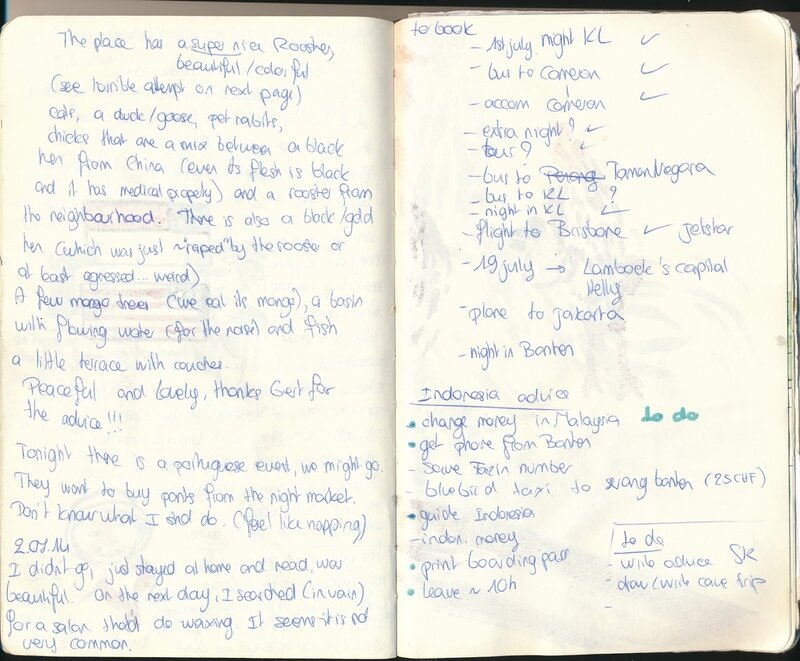 The place has a super nice Rooster,
beautiful/colorful
(see horrible attempt on next page)
cats, a duck/goose, pet rabits,
chicks that are a mix between a black
hen from China (even its flesh is black
and it has medical propety) and a rooster from
the neighbourhood. There is also a black/gold
hen (which was just ~"raped" by the rooster or
at least agressed... weird)
A few mango trees (we eat its mango), a basin
with flowing water (for the noise) and fish
a little terrace with couches.
Peaceful and lovely, thanks Gert for
the advice!!!
Tonight there is a portuguese event, we might go.
They want to buy pants from the night market.
Don't know what I shd do. (feel like napping)
2.07.14
I didn't go, just stayed at home and read, was
beautiful. On the next day, I searched (in vain)
for a salon that'd do waxing. It seems it is not
very common.
to book
- 1st july night KL ✓
- bus to Cameron ✓
- accom Cameron ✓
- extra night? ✓
- tour? ✓
- bus to Penang Taman Negara
- bus to KL ?
- night in KL ✓
- flight to Brisbane ✓ jetstar
- 19 july → Lambock's capital
Nelly
- plane to jakarta
- night in Banten
Indonesia advice
• change money in Malaysia to do
• get phone from Banten
- save number
bluebird taxi to serang banten (25CHF)
• guide Indonesia
- indon. money
• print boarding pass
• leave ~ 10h
to do
- write advice SK
- draw/write cave trip
-